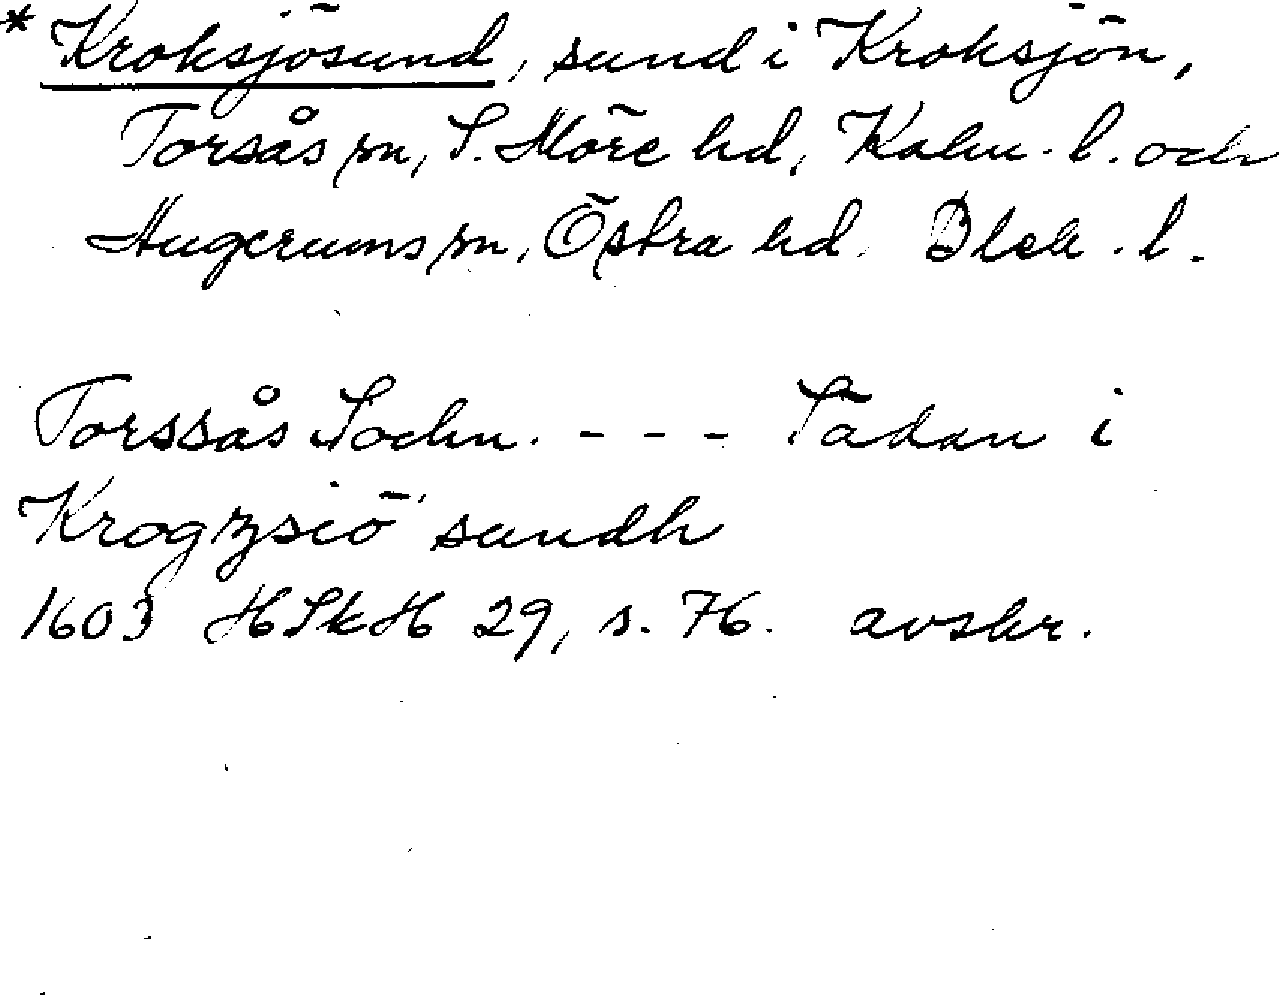 *Kroksjösund, sund i Kroksjön,
Torsås sn, S. Möre hd, Kalm. l. och
Augerums sn, Östra hd. Blek. l.
Torssås Sochn. - - - Sadan i
Krogzsiö sundh
1603 HSkH 29, s. 76. avskr.